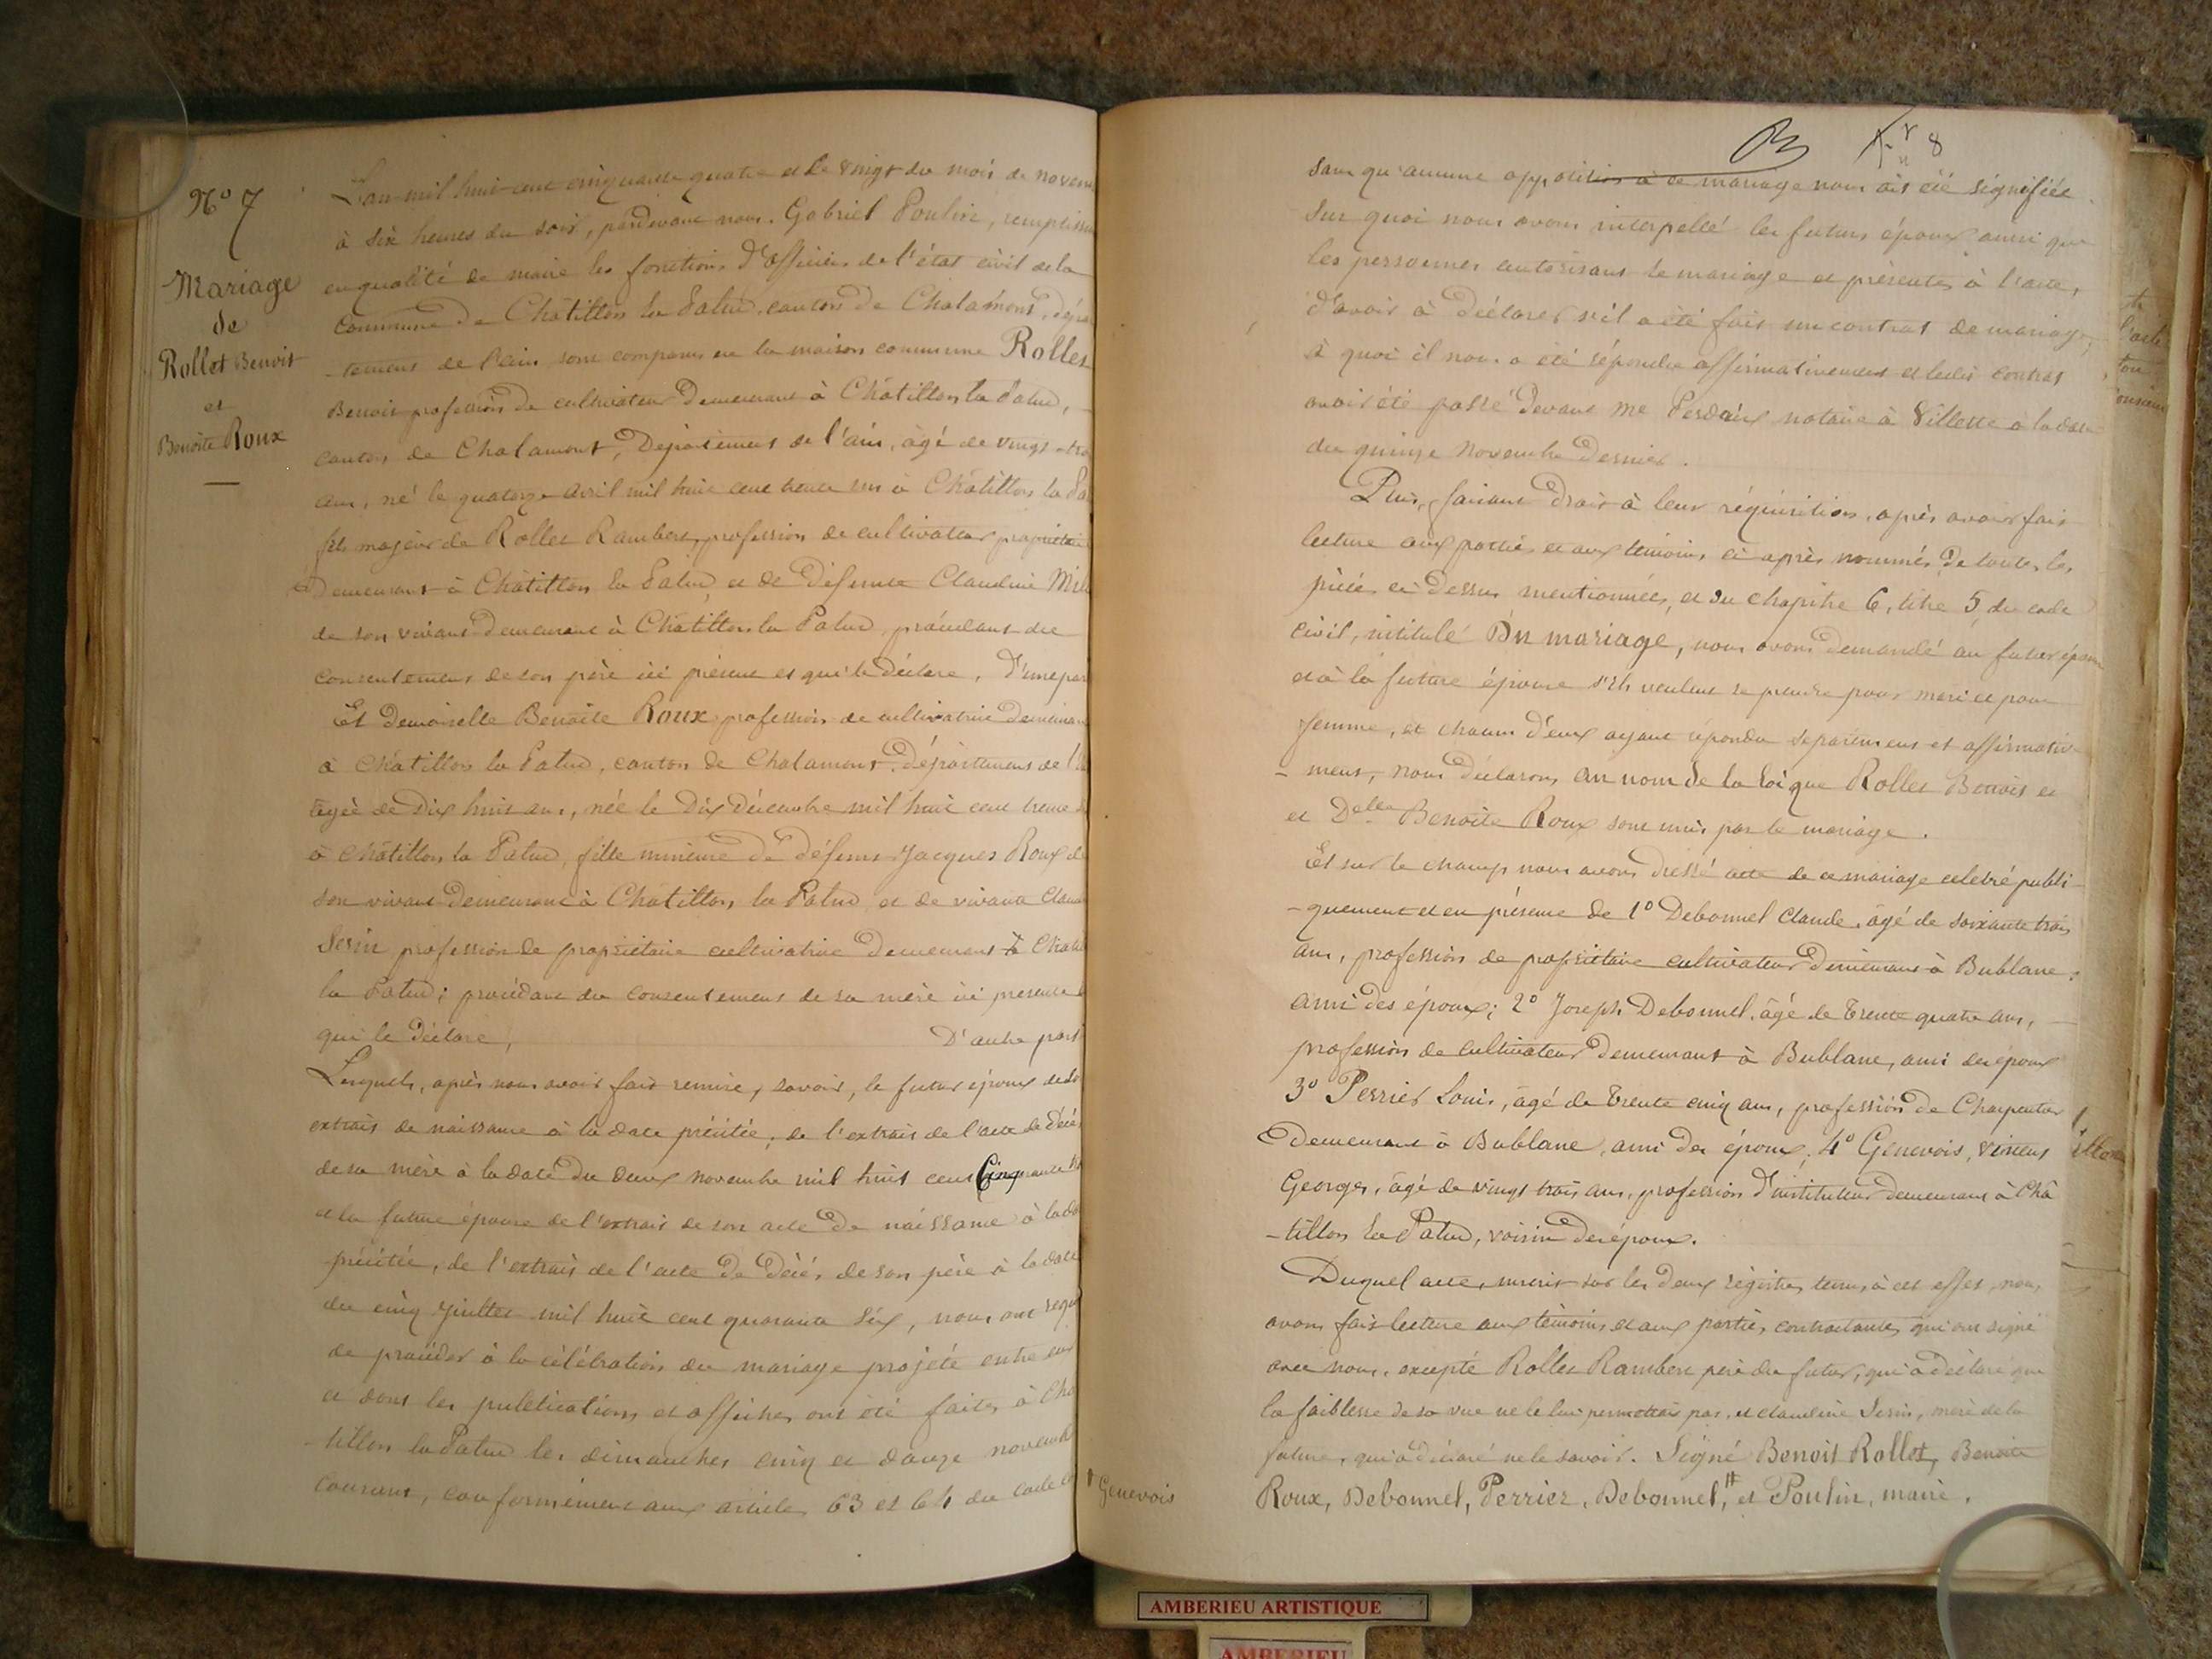 N° 7
Mariage
de
Rollet Benoit
et
Benoite Roux
L'an mil huit cent cinquante quatre et le vingt du mois de novem
à six heures du soir, pardevant nous Gabriel Poulin, remplissa
en qualité de maire les fonctions d'officier de l'état civil de la
Commune de Châtillon la Palud, canton de Chalamont, dépar
-tement de l'ain sont comparus en la maison commune Rollet
Benoit profession de cultivateur demeurant à Châtillon la Palud,
canton de Chalamont, Département de l'ain, âgé de vingt-tro
ans, né le quatorze avril mil huit cent trente un à Châtillon la Pa
fils majeur de Rollet Rambert, profession de cultivateur propriétaire
Demeurant à Châtillon la Palud et de défunte Claudine
de son vivant demeurant à Châtillon la Palud, procédant du
consentement de son père ici présent et qui le déclare, D'une par
Et Demoiselle Benoite Roux profession de cultivatrice demeuran
à Châtillon la Palud, canton de Chalamont, département de l'
âgée de dix huit ans, née le dix décembre mil huit cent trente
à Châtillon la Palud, fille mineure de défunt Jacques Roux de
son vivant demeurant à Châtillon la Palud et de vivante Claud
Serin profession de propriétaire cultivatrice demeurant à Chatil
la Palud; procédant du consentement de sa mère ici présente
qui le déclare, D'autre part
Lesquels, après nous avoir fait remise, savoir, le futur époux de so
extrait de naissance à la date précitée, de l'extrait de l'acte de décè
de sa mère à la date du deux novembre mil huit cent cinquante
et la future épouse de l'extrait de son acte de naissance à la da
précitée, de l'extrait de l'acte de décès de son père à la date
du cinq juillet mil huit cent quarante six, nous ont requ
de procéder à la célébration du mariage projeté entre eux
et dont les publications et affiches ont été faites à Châ
-tillon la Palud les dimanches cinq et douze novemb
courant, conformément aux articles 63 et 64 du code
8
sans qu'aucune opposition à ce mariage nous ait été signifiée.
Sur quoi nous avons interpellé les futurs époux ainsi que
les personnes autorisant le mariage et présentes à l'acte,
d'avoir à déclarer s'il a été fait un contrat de mariage;
à quoi il nous a été répondu affirmativement et ledit contrat
avoir été passé devant me Perdrix notaire à Villette à la date
du quinze novembre dernier.
Puis, faisant droit à leur réquisition, après avoir fait
lecture aux parties et aux témoins ci après nommés de toutes les
pièces ci dessus mentionnées, et du chapitre 6, titre 5, du code
civil, intitulé Du mariage, nous avons demandé au futur époux
et à la future épouse s'ils veulent se prendre pour mari et pour
femme, et chacun d'eux ayant répondu séparément et affirmative
-ment, nous déclarons au nom de la loi que Rollet Benoit et
et Delle Benoite Roux sont unis par le mariage.
Et sur le champ nous avons dressé acte de ce mariage célébré publi-
-quement et en présence de 1° Debonnel Claude, âgé de soixante trois
ans, profession de propriétaire cultivateur demeurant à Bublane,
ami des époux; 2° Joseph Debonnel, âgé de trente quatre ans,
profession de cultivateur demeurant à Bublane, ami des époux
3° Perrier Louis, âgé de trente cinq ans, profession de Charpentier
Demeurant à Bublane, ami des époux; 4° Genevois, Vincent
Georges, âgé de vingt trois ans, profession d'instituteur demeurant à Châ
-tillon la Palud, voisin des époux.
Duquel acte, inscrit sur les deux registres tenus à cet effet, nous
avons fait lecture aux témoins et aux parties contractantes qui ont signé
avec nous, excepté Rollet Rambert père du futur, qui a déclaré que
la faiblesse de sa vue ne le lui permettait pas, et Claudine Serin, mère de la
future, qui a déclaré ne le savoir. Signé Benoit Rollet, Benoite
Roux, Debonnel, Perrier, Debonnel,# et Poulin, maire.
# Genevois
AMBERIEU ARTISTIQUE
AMBERIEU